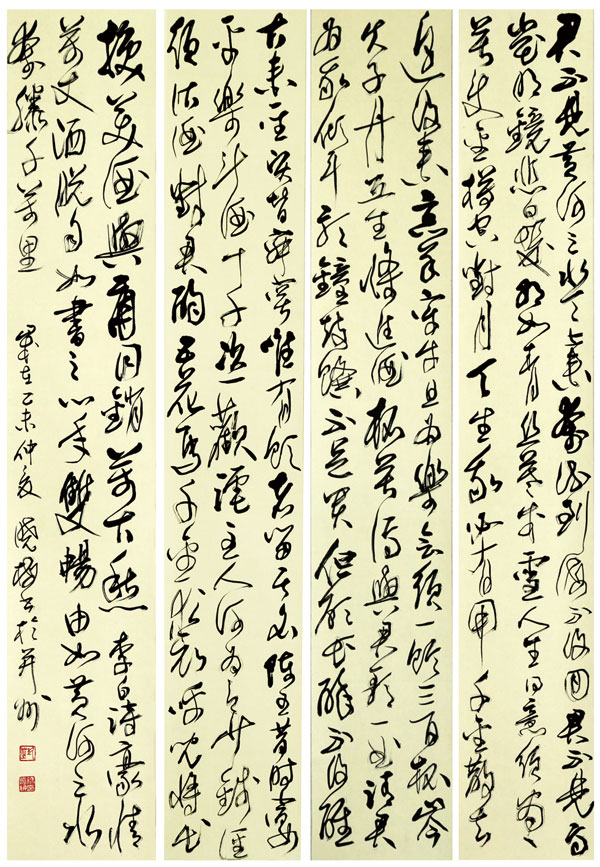 君不見黃河之水天上來奔流到海不復回君不見高
堂明鏡悲白髮朝如青絲暮成雪人生得意須盡
莫使金樽空對月天生我必有用千金散去
還復來烹羊宰牛且為樂會須一飲三百杯岑
夫子丹丘生將進酒杯莫停與君歌一曲請君
為我傾耳聽鐘鼓饌不足貴但願長醉不復醒
古來聖賢皆寂寞惟有飲者留其名陳王昔時宴
平樂斗酒十千恣歡謔主人何為言少錢徑
須沽酒對君酌五花馬千金裘呼兒將出
換美酒與爾同銷萬古愁 李白詩豪情
萬丈洒脫自如書之心手雙暢由如黃河之水
奔騰千萬里 歲在乙未仲夏 書於并州